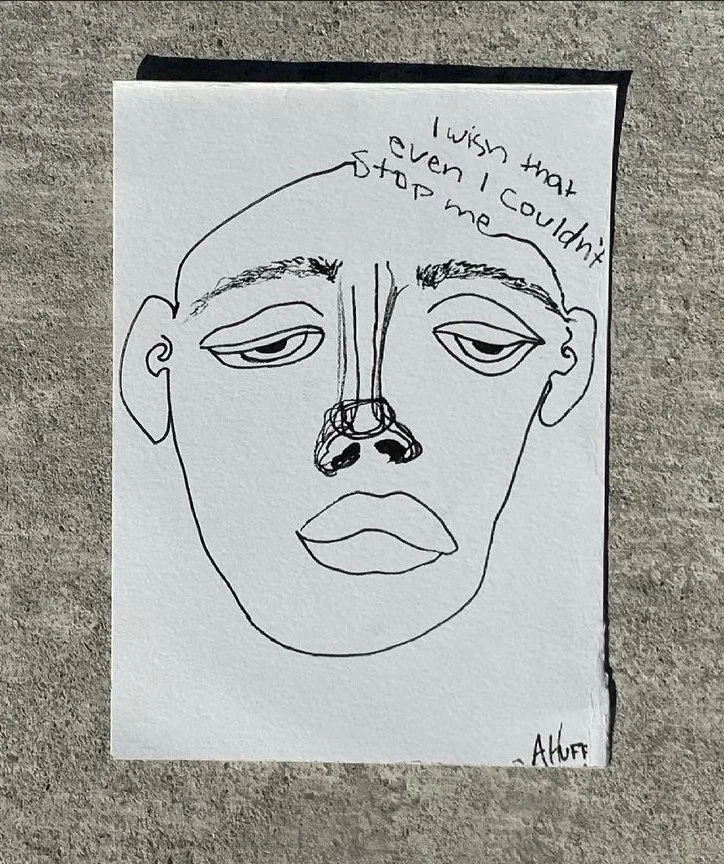 I wish that
even I couldn't
Stop me
AHUFF